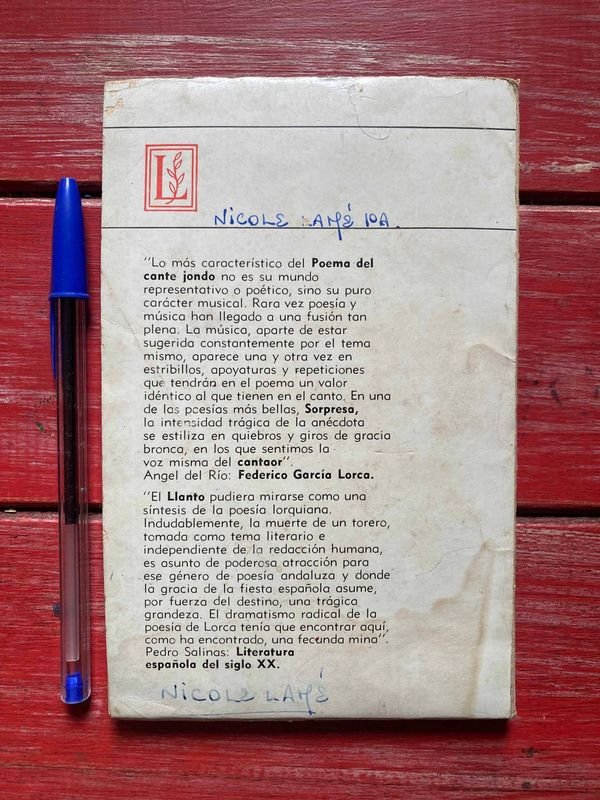 L
NICOLE LAMÉ 10A.
"Lo más característico del Poema del
cante jondo no es su mundo
representativo o poético, sino su puro
carácter musical. Rara vez poesía y
música han llegado a una fusión tan
plena. La música, aparte de estar
sugerida constantemente por el tema
mismo, aparece una y otra vez en
estribillos, apoyaturas y repeticiones
que tendrán en el poema un valor
idéntico al que tienen en el canto. En una
de las poesías más bellas, Sorpresa,
la intensidad trágica de la anécdota
se estiliza en quiebros y giros de gracia
bronca, en los que sentimos la
voz misma del cantaor".
Angel del Río: Federico García Lorca.
"El Llanto pudiera mirarse como una
síntesis de la poesía lorquiana.
Indudablemente, la muerte de un torero,
tomada como tema literario e
independiente de la redacción humana,
es asunto de poderosa atracción para
ese género de poesía andaluza y donde
la gracia de la fiesta española asume,
por fuerza del destino, una trágica
grandeza. El dramatismo radical de la
poesía de Lorca tenía que encontrar aquí,
como ha encontrado, una fecunda mina".
Pedro Salinas: Literatura
española del siglo XX.
NICOLE LAMÉ